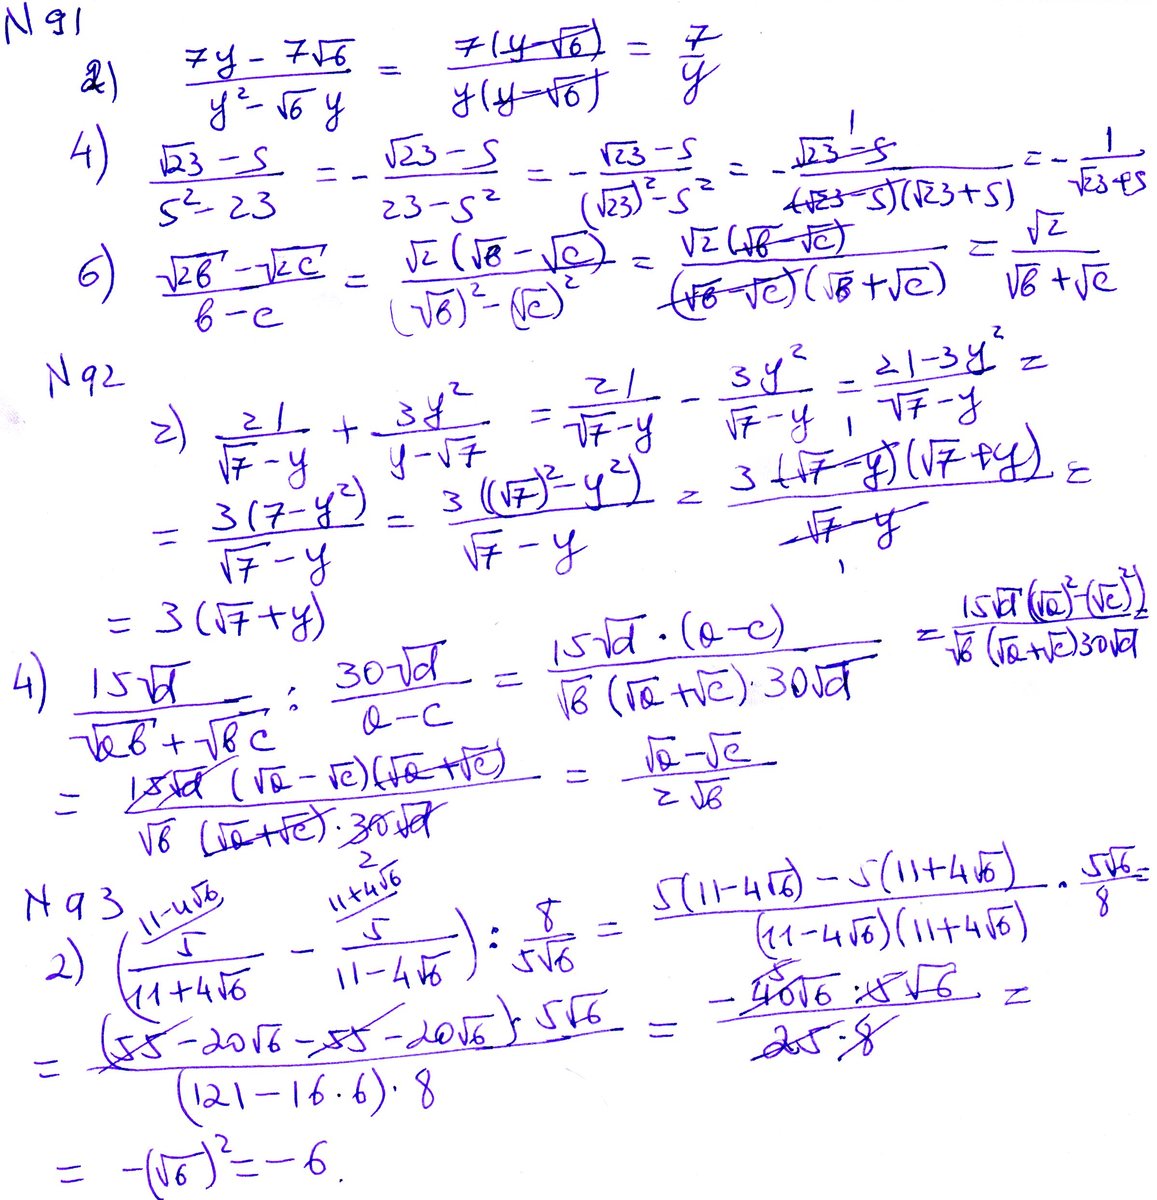 N 91
2) (7y - 7√6)/(y² - √6 y) = 7(y-√6)/(y(y-√6)) = 7/y
4) (√23 - 5)/(5² - 23) = - (√23 - 5)/(23 - 5²) = - (√23 - 5)/((√23)² - 5²) = - (√23 - 5)/((√23 - 5)(√23 + 5)) = - 1/(√23+5)
6) (√2в - √2с)/(в - с) = √2(√в - √с)/((√в)² - (√с)²) = √2(√в - √с)/((√в - √с)(√в + √с)) = √2/(√в + √с)
N 92
2) 21/(√7 - y) + 3y²/(y - √7) = 21/(√7 - y) - 3y²/(√7 - y) = (21 - 3y²)/(√7 - y) =
= 3(7 - y²)/(√7 - y) = 3((√7)² - y²)/(√7 - y) = 3(√7 - y)(√7 + y)/(√7 - y) =
= 3(√7 + y)
4) 15√d/(√ав + √вс) : 30√d/(а - с) = 15√d · (а - с)/(√в (√а + √с) · 30√d) = 15√d((√а)² - (√с)²)/(√в (√а + √с) 30√d) =
= 15√d (√а - √с)(√а + √с)/(√в (√а + √с) · 30√d) = (√а - √с)/(2√в)
N 93
2) (5/(11 + 4√6) - 5/(11 - 4√6)) : 8/(5√6) = (5(11 - 4√6) - 5(11 + 4√6))/((11 - 4√6)(11 + 4√6)) · 5√6/8 =
= (55 - 20√6 - 55 - 20√6) · 5√6/((121 - 16·6) · 8) = - 40√6 · 5√6/(25 · 8) =
= -(√6)² = - 6.